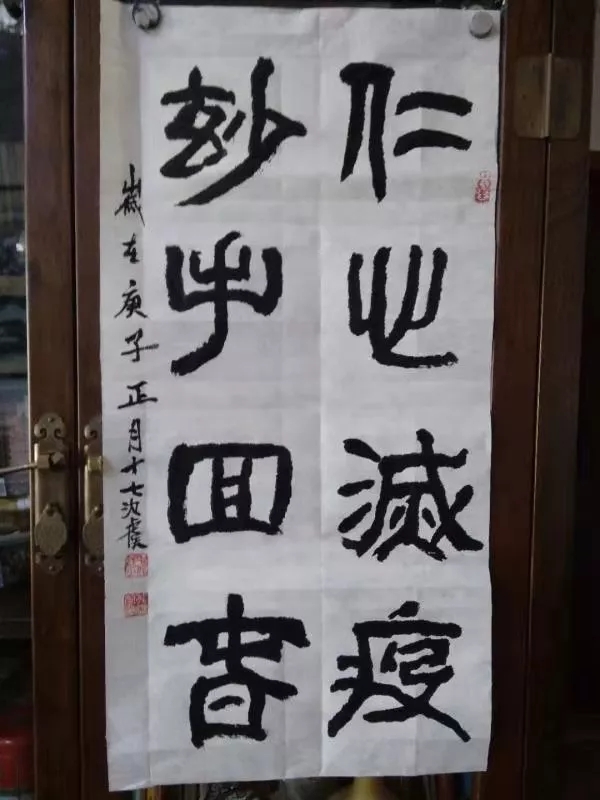 仁心滅疫
玅手回春
歲在庚子正月十七